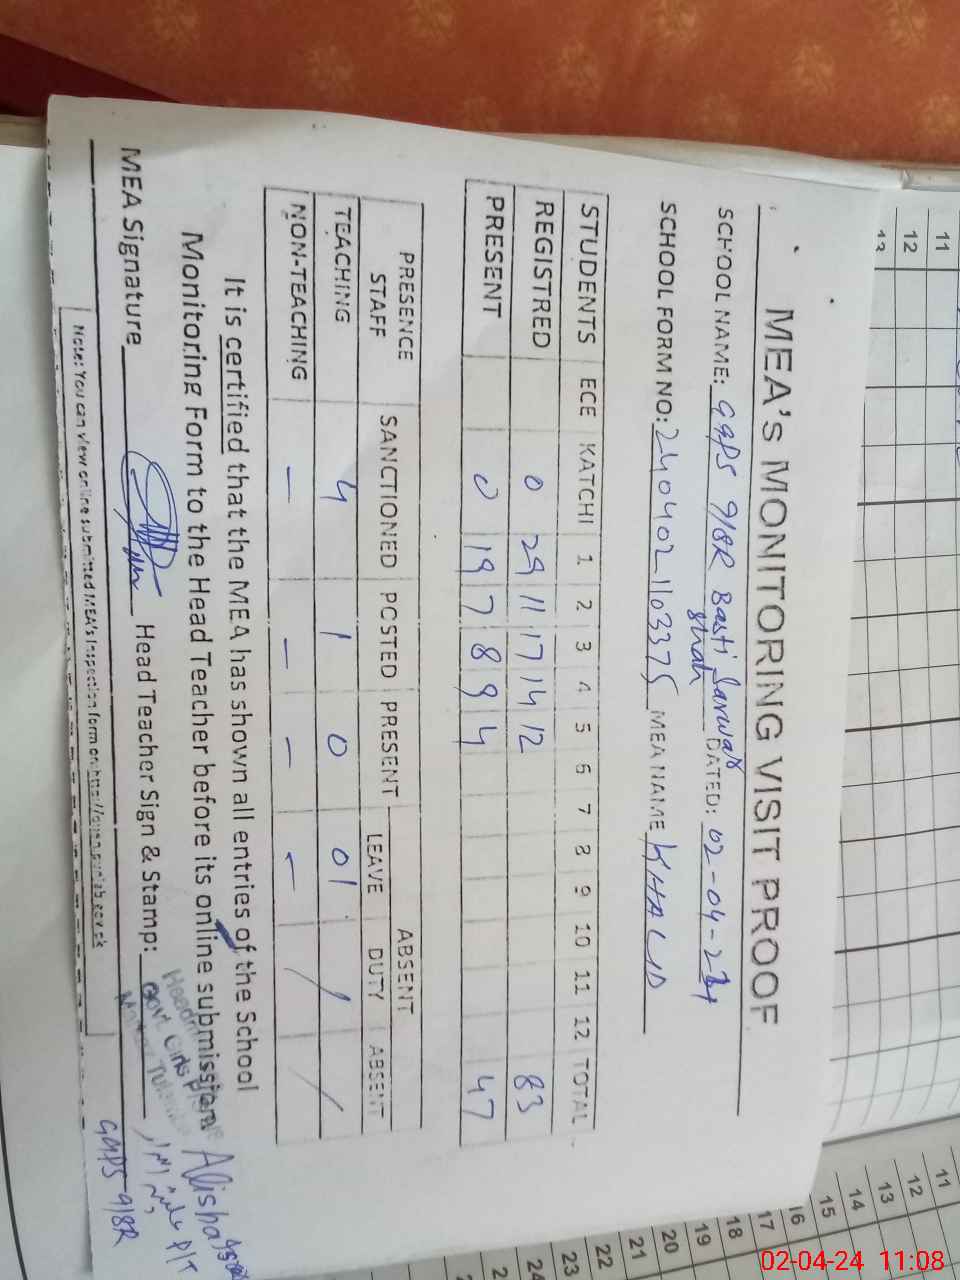 MEA's MONITORING VISIT PROOF
SCHOOL NAME: GGPS 9/8R Basti Sarwar Shah DATED: 02-04-24
SCHOOL FORM NO: MEA NAME KHALID
STUDENTS ECE KATCHI 1 2 3 4 5 6 7 8 9 10 11 12 TOTAL
REGISTRED 0 29 11 17 14 12 83
PRESENT 0 19 7 8 9 4 47
PRESENCE STAFF SANCTIONED POSTED PRESENT ABSENT
LEAVE DUTY ABSENT
TEACHING 4 1 0 01 / /
NON-TEACHING - - - -
It is certified that the MEA has shown all entries of the School
Monitoring Form to the Head Teacher before its online submission
MEA Signature Head Teacher Sign & Stamp:
Govt Girls
Alisha
P/T
GGPS 9/8R
Note: You can view online submitted MEA's Inspection form on http://open.punjab.gov.pk
11
12
13
11
12
13
14
15
16
17
18
19
20
21
22
23
24
02-04-24 11:08